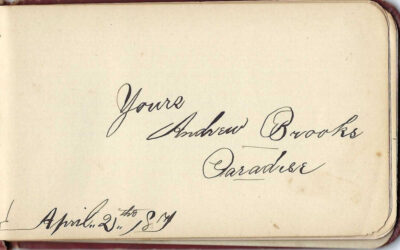 Yours
Andrew Brooks
Paradise
April 2